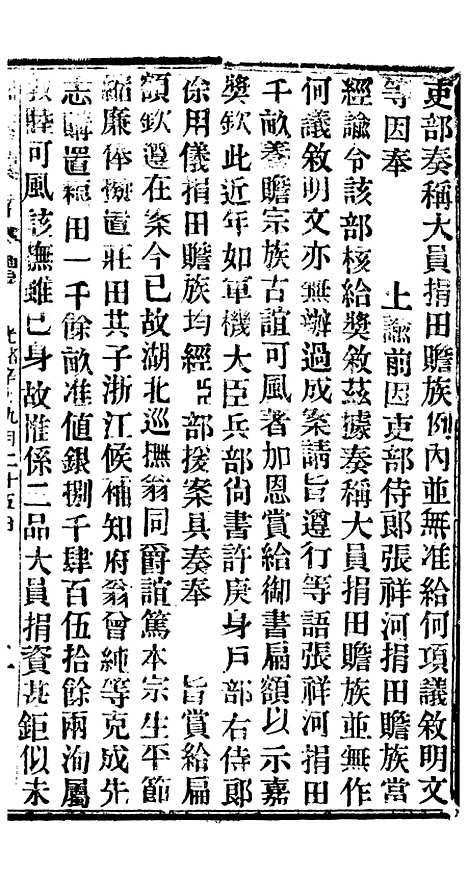 吏部奏稱大員捐田贍族例內並無准給何項議敘明文
等因奉　　上諭前因吏部侍郎張祥河捐田贍族當
經諭令該部核給獎敘茲據奏稱大員捐田贍族並無作
何議敘明文亦無辦過成案請旨遵行等語張祥河捐田
千畝養贍宗族古誼可風著加恩賞給御書扁額以示嘉
獎欽此近年如軍機大臣兵部尚書許庚身戶部右侍郎
徐用儀捐田贍族均經臣部援案具奏奉　　旨賞給扁
額欽遵在案今已故湖北巡撫翁同爵誼篤本宗生平節
縮廉俸擬置莊田其子浙江候補知府翁曾純等克成先
志購置糧田一千餘畝准值銀捌千肆百伍拾餘兩洵屬
敦睦可風該撫雖已身故惟係二品大員捐資甚鉅似未
九月二十五日